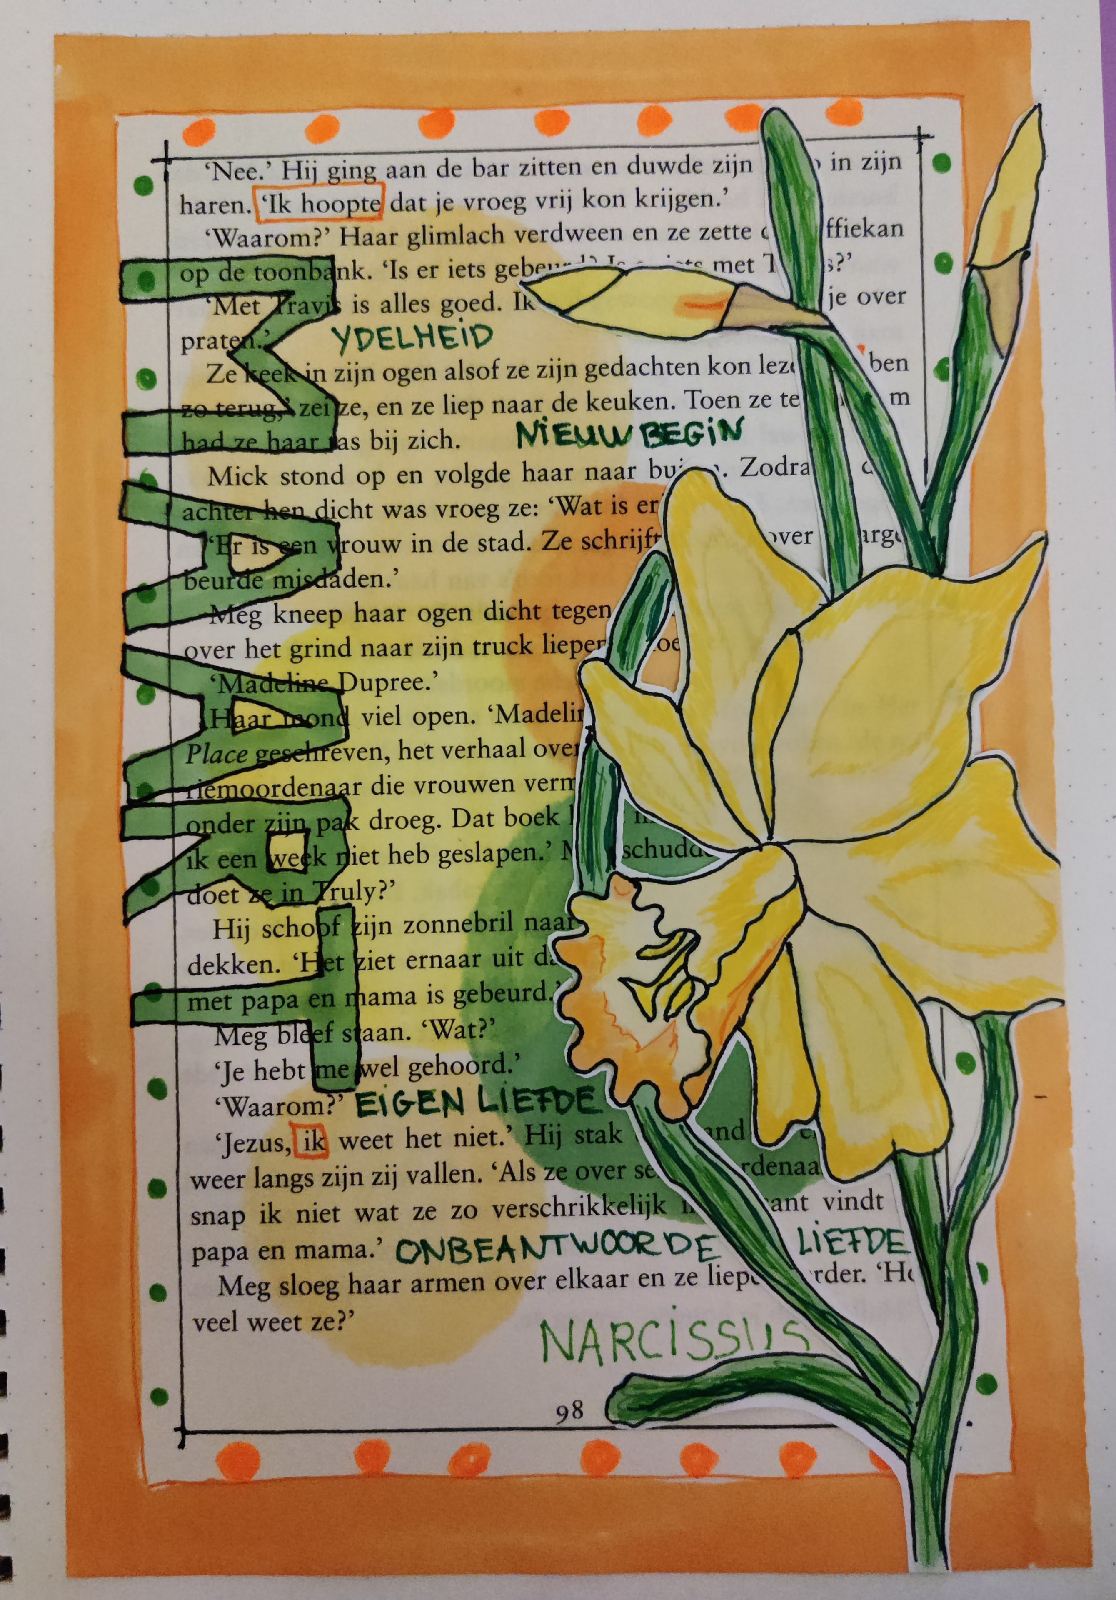 ‘Nee.’ Hij ging aan de bar zitten en duwde zijn in zijn
haren. ‘Ik hoopte dat je vroeg vrij kon krijgen.’
‘Waarom?’ Haar glimlach verdween en ze zette ffiekan
op de toonbank. ‘Is er iets met
‘Met Travis is alles goed. Ik je over
praten.’ YDELHEID
Ze keek in zijn ogen alsof ze zijn gedachten kon ben
zo terug,’ zei ze, en ze liep naar de keuken. Toen ze
had ze haar tas bij zich. NIEUW BEGIN
Mick stond op en volgde haar naar Zodra
achter hen dicht was vroeg ze: ‘Wat is er
‘Er is een vrouw in de stad. Ze schrijft over
beurde misdaden.’
Meg kneep haar ogen dicht tegen
over het grind naar zijn truck liepen
‘Madeline Dupree.’
Haar mond viel open. ‘Madelin
Place geschreven, het verhaal over
riemoordenaar die vrouwen verm
onder zijn pak droeg. Dat boek
ik een week niet heb geslapen.’ schudde
doet ze in Truly?’
Hij schoof zijn zonnebril naar
dekken. ‘Het ziet ernaar uit
met papa en mama is gebeurd.’
Meg bleef staan. ‘Wat?’
‘Je hebt me wel gehoord.’
‘Waarom?’ EIGEN LIEFDE
‘Jezus, ik weet het niet.’ Hij stak
weer langs zijn zij vallen. ‘Als ze over rdenaa
snap ik niet wat ze zo verschrikkelijk vindt
papa en mama.’ ONBEANTWOORDE LIEFDE
Meg sloeg haar armen over elkaar en ze rder.
veel weet ze?’
NARCISSUS
98
MAART